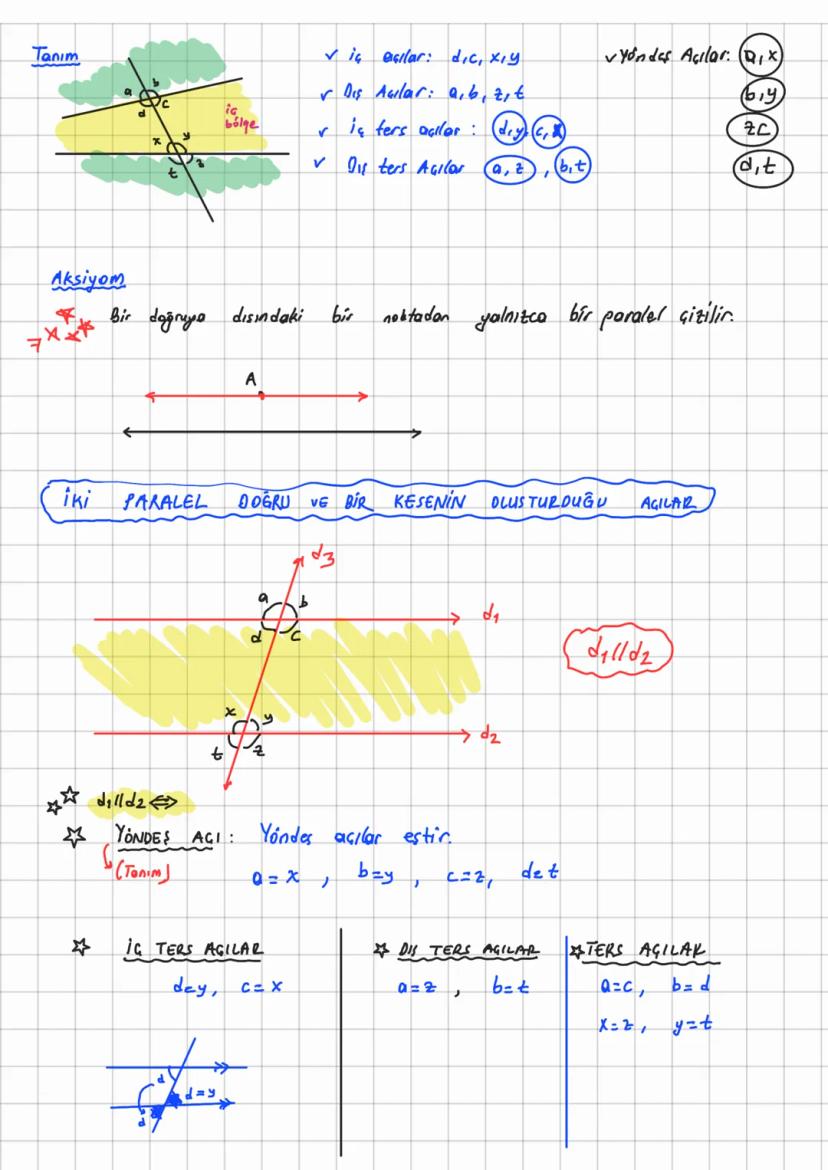 Tanım
a b
d c
x y
t z
iç bölge
✓ iç açılar: d,c,x,y
✓ Dış Açılar: a,b,z,t
✓ iç ters açılar : d,y, c,x
✓ Dış ters Açılar a,z , b,t
✓ Yöndeş Açılar: a,x
b,y
zc
d,t
Aksiyom
Bir doğruya dışındaki bir noktadan yalnızca bir paralel çizilir.
A
İKİ PARALEL DOĞRU VE BİR KESENİN OLUŞTURDUĞU AÇILAR
d3
a b
d1
d c
d1//d2
x y
d2
t z
d1//d2 ⇔
YÖNDEŞ AÇI : Yöndeş açılar eştir.
(Tanım)
a=x , b=y , c=z, d=t
İÇ TERS AÇILAR
d=y, c=x
d
d=y
d
DIŞ TERS AÇILAR
a=z , b=t
TERS AÇILAR
a=c, b=d
x=z, y=t